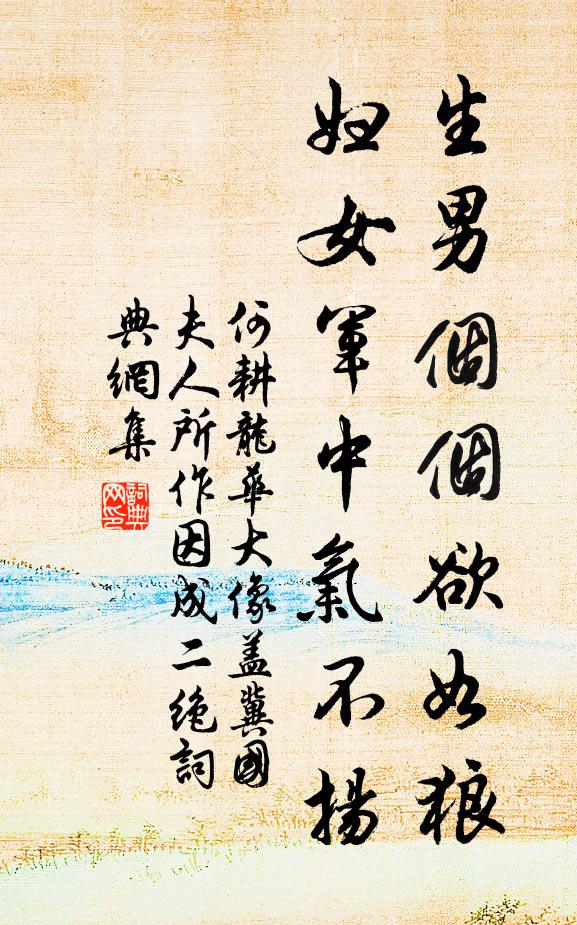 生男個個欲如狼
婦女軍中氣不揚
何耕龍華大像盖冀國
夫人所作因成二絶詞
典網集
詞典
网印